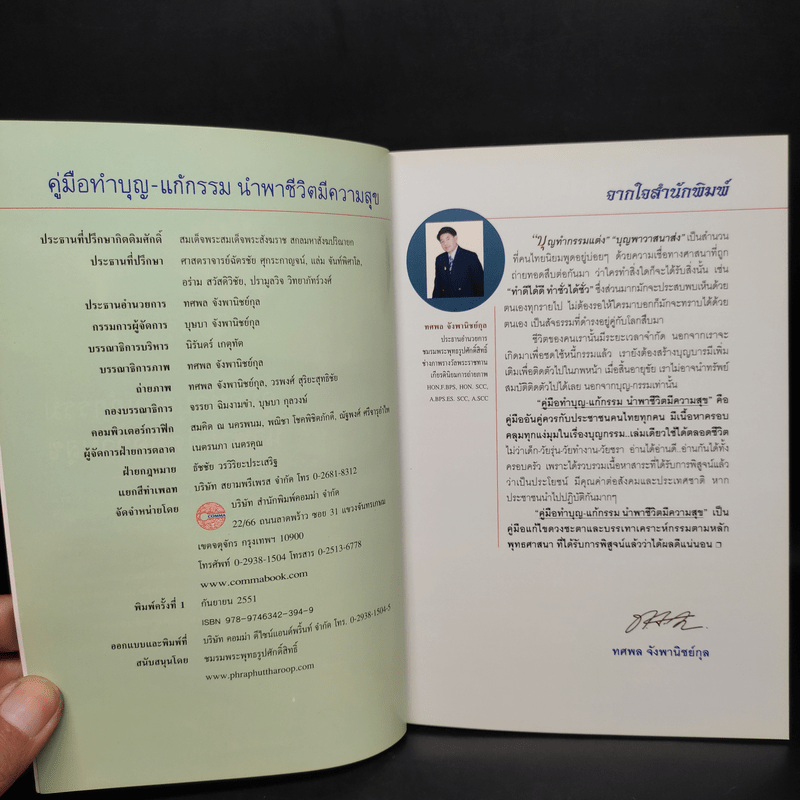 คู่มือทำบุญ-แก้กรรม นำพาชีวิตมีความสุข
ประธานที่ปรึกษากิตติมศักดิ์ สมเด็จพระสมเด็จพระสังฆราช สกลมหาสังฆปริณายก
ประธานที่ปรึกษา ศาสตราจารย์ฉัตรชัย ศุกระกาญจน์, แล่ม จันท์พิศาโล,
อร่าม สวัสดิวิชัย, ปรามูลวิจ วิทยาภัทร์วงศ์
ประธานอำนวยการ ทศพล จังพานิชย์กุล
กรรมการผู้จัดการ บุษบา จังพานิชย์กุล
บรรณาธิการบริหาร นิรันดร์ เกตุทัต
บรรณาธิการภาพ ทศพล จังพานิชย์กุล
ถ่ายภาพ ทศพล จังพานิชย์กุล, วรพงศ์ สุริยะสุทธิชัย
กองบรรณาธิการ จรรยา ฉิมงามขำ, บุษบา กุลวงษ์
คอมพิวเตอร์กราฟิก สมคิด ณ นครพนม, พณิชา โชคพิชิตภักดี, ณัฐพงศ์ ศรีจารุลำไพ
ผู้จัดการฝ่ายการตลาด เนตรนภา เนตรคุณ
ฝ่ายกฎหมาย ธัชชัย วรวิริยะประเสริฐ
แยกสีทำเพลท บริษัท สยามพรีเพรส จำกัด โทร 0-2681-8312
จัดจำหน่ายโดย COMMA บริษัท สำนักพิมพ์คอมม่า จำกัด
22/66 ถนนลาดพร้าว ซอย 31 แขวงจันทรเกษม
เขตจตุจักร กรุงเทพฯ 10900
โทรศัพท์ 0-2938-1504 โทรสาร 0-2513-6778
www.commabook.com
พิมพ์ครั้งที่ 1 กันยายน 2551
ISBN 978-9746342-394-9
ออกแบบและพิมพ์ที่ บริษัท คอมม่า ดีไซน์แอนด์พริ้นท์ จำกัด โทร. 0-2938-1504-5
สนับสนุนโดย ชมรมพระพุทธรูปศักดิ์สิทธิ์
www.phraphuttharoop.com
จากใจสำนักพิมพ์
ทศพล จังพานิชย์กุล
ประธานอำนวยการ
ชมรมพระพุทธรูปศักดิ์สิทธิ์
ช่างภาพรางวัลพระราชทาน
เกียรตินิยมการถ่ายภาพ
HON.F.BPS, HON. SCC,
A.BPS.ES. SCC, A.SCC
"บุญทำกรรมแต่ง" "บุญพาวาสนาส่ง" เป็นสำนวน
ที่คนไทยนิยมพูดอยู่บ่อยๆ ด้วยความเชื่อทางศาสนาที่ถูก
ถ่ายทอดสืบต่อกันมา ว่าใครทำสิ่งใดก็จะได้รับสิ่งนั้น เช่น
"ทำดีได้ดี ทำชั่วได้ชั่ว" ซึ่งส่วนมากมักจะประสบพบเห็นด้วย
ตนเองทุกรายไป ไม่ต้องรอให้ใครมาบอกก็มักจะทราบได้ด้วย
ตนเอง เป็นสัจธรรมที่ดำรงอยู่คู่กับโลกสืบมา
ชีวิตของคนเรานั้นมีระยะเวลาจำกัด นอกจากเราจะ
เกิดมาเพื่อชดใช้หนี้กรรมแล้ว เรายังต้องสร้างบุญบารมีเพิ่ม
เติมเพื่อติดตัวไปในภพหน้า เมื่อสิ้นอายุขัย เราไม่อาจนำทรัพย์
สมบัติติดตัวไปได้เลย นอกจากบุญ-กรรมเท่านั้น
"คู่มือทำบุญ-แก้กรรม นำพาชีวิตมีความสุข" คือ
คู่มืออันคู่ควรกับประชาชนคนไทยทุกคน มีเนื้อหาครอบ
คลุมทุกแง่มุมในเรื่องบุญกรรม...เล่มเดียวใช้ได้ตลอดชีวิต
ไม่ว่าเด็ก-วัยรุ่น-วัยทำงาน-วัยชรา อ่านได้อ่านดี...อ่านกันได้ทั้ง
ครอบครัว เพราะได้รวบรวมเนื้อหาสาระที่ได้รับการพิสูจน์แล้ว
ว่าเป็นประโยชน์ มีคุณค่าต่อสังคมและประเทศชาติ หาก
ประชาชนนำไปปฏิบัติกันมากๆ
"คู่มือทำบุญ-แก้กรรม นำพาชีวิตมีความสุข" เป็น
คู่มือแก้ไขดวงชะตาและบรรเทาเคราะห์กรรมตามหลัก
พุทธศาสนา ที่ได้รับการพิสูจน์แล้วว่าได้ผลดีแน่นอน
ทศพล จังพานิชย์กุล